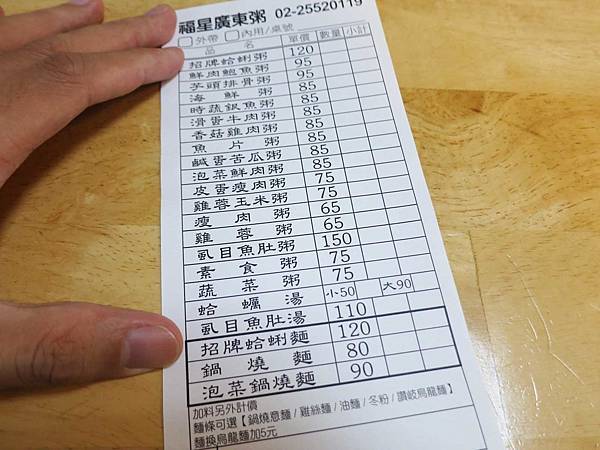 福星廣東粥 02-25520119
□外帶 □內用/桌號
品名 單價 數量 小計
招牌蛤蜊粥 120
鮮肉鮑魚粥 95
芋頭排骨粥 95
海鮮粥 85
時蔬銀魚粥 85
滑蛋牛肉粥 85
香菇雞肉粥 85
魚片粥 85
鹹蛋苦瓜粥 85
泡菜鮮肉粥 85
皮蛋瘦肉粥 75
雞蓉玉米粥 75
瘦肉粥 65
雞蓉粥 65
虱目魚肚粥 150
素食粥 75
蔬菜粥 75
蛤蠣湯 小50 大90
虱目魚肚湯 110
招牌蛤蜊麵 120
鍋燒麵 80
泡菜鍋燒麵 90
加料另外計價
麵條可選【鍋燒意麵/雞絲麵/油麵/冬粉/讚岐烏龍麵】
麵換烏龍麵加5元